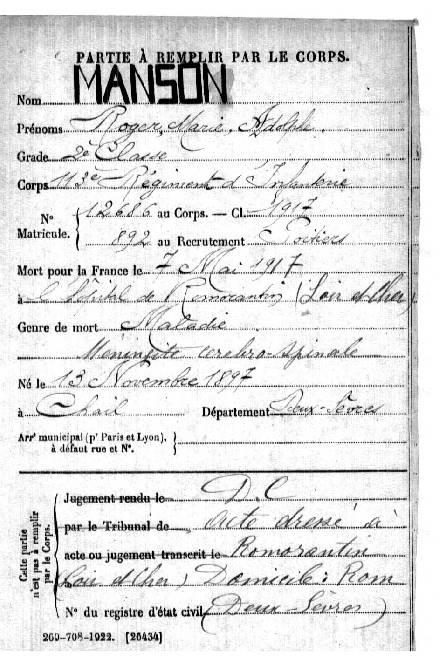 PARTIE À REMPLIR PAR LE CORPS.
Nom MANSON
Prénoms Roger, Marie, Adolphe
Grade 2e Classe
Corps 113e Régiment d'Infanterie
N° Matricule. { 12686 au Corps. — Cl. 1917
892 au Recrutement Poitiers
Mort pour la France le 7 Mai 1917
à l'Hôpital de Romorantin (Loir et Cher)
Genre de mort Maladie
Méningite cérébro-spinale
Né le 13 Novembre 1897
à Chail Département Deux-Sèvres
Arrt municipal (pr Paris et Lyon), à défaut rue et N°. }
Cette partie n'est pas à remplir par le Corps.
Jugement rendu le D.C
par le Tribunal de acte dressé à
acte ou jugement transcrit le Romorantin
(Loir et Cher) Domicile : Rom
N° du registre d'état civil (Deux-Sèvres)
260-708-1922. [26434]